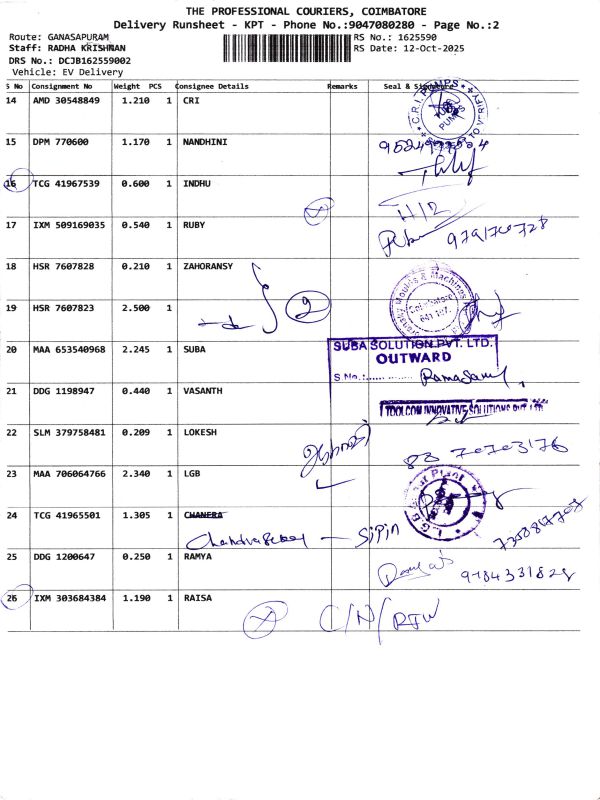 THE PROFESSIONAL COURIERS, COIMBATORE
Delivery Runsheet - KPT - Phone No.:9047080280 - Page No.:2
Route: GANASAPURAM
RS No.: 1625590
Staff: RADHA KRISHNAN
RS Date: 12-Oct-2025
DRS No.: DCJB162559002
Vehicle: EV Delivery
S No Consignment No Weight PCS Consignee Details Remarks Seal & Signature
14 AMD 30548849 1.210 1 CRI
C.R.I. PUMPS
PUMPS
15 DPM 770600 1.170 1 NANDHINI
16 TCG 41967539 0.600 1 INDHU
17 IXM 509169035 0.540 1 RUBY
9791740728
18 HSR 7607828 0.210 1 ZAHORANSKY
Moulds & Machines
Coimbatore
641 107
19 HSR 7607823 2.500 1
2
20 MAA 653540968 2.245 1 SUBA
SUBA SOLUTION PVT. LTD.
OUTWARD
S.No.:
Ramasamy
21 DDG 1198947 0.440 1 VASANTH
TOOLCOM INNOVATIVE SOLUTIONS PVT LTD
22 SLM 379758481 0.209 1 LOKESH
88 70703176
23 MAA 706064766 2.340 1 LGB
24 TCG 41965501 1.305 1 CHANERA
Sipin
25 DDG 1200647 0.250 1 RAMYA
26 IXM 303684384 1.190 1 RAISA